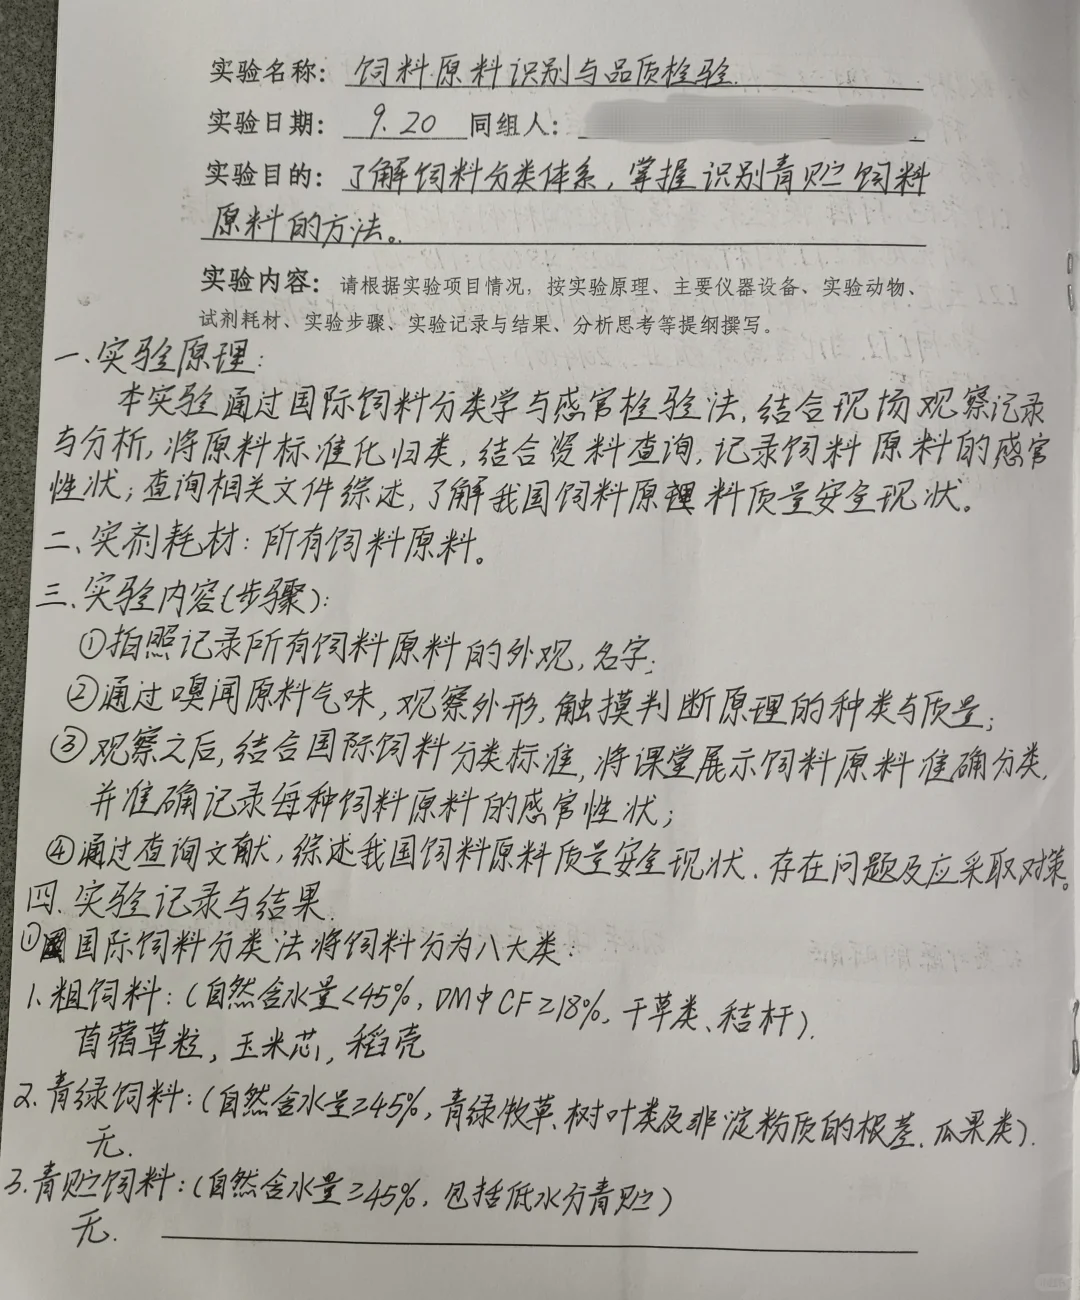 实验名称：饲料原料识别与品质检验.
实验日期：9.20 同组人：
实验目的：了解饲料分类体系，掌握识别青贮饲料
原料的方法。
实验内容：请根据实验项目情况，按实验原理、主要仪器设备、实验动物、
试剂耗材、实验步骤、实验记录与结果、分析思考等提纲撰写。
一、实验原理：
本实验通过国际饲料分类学与感官检验法，结合现场观察记录
与分析，将原料标准化归类，结合资料查询，记录饲料原料的感官
性状；查询相关文件综述，了解我国饲料原料质量安全现状。
二、实剂耗材：所有饲料原料。
三、实验内容(步骤)：
①拍照记录所有饲料原料的外观，名字；
②通过嗅闻原料气味，观察外形，触摸判断原理的种类与质量；
③观察之后，结合国际饲料分类标准，将课堂展示饲料原料准确分类，
并准确记录每种饲料原料的感官性状；
④通过查询文献，综述我国饲料原料质量安全现状、存在问题及应采取对策。
四、实验记录与结果.
①国际饲料分类法将饲料分为八大类：
1.粗饲料：(自然含水量<45%，DM中CF≥18%，干草类、秸杆).
苜蓿草粒，玉米芯，稻壳
2.青绿饲料：(自然含水量≥45%，青绿牧草、树叶类及非淀粉质的根茎、瓜果类).
无.
3.青贮饲料：(自然含水量≥45%，包括低水分青贮)
无.